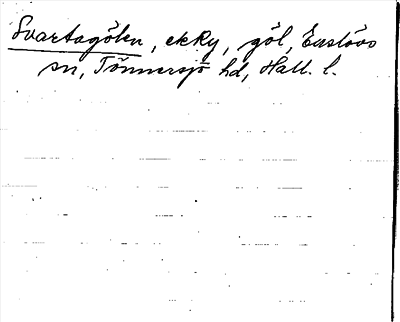 Svartagölen, ekky, göl, Enslövs
sn, Tönnersjö hd, Hall. l.